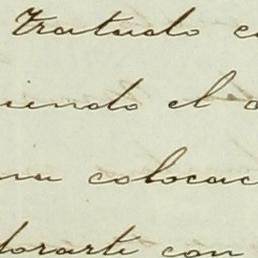 Tratado c
iendo el c
na colocac
lorarte con